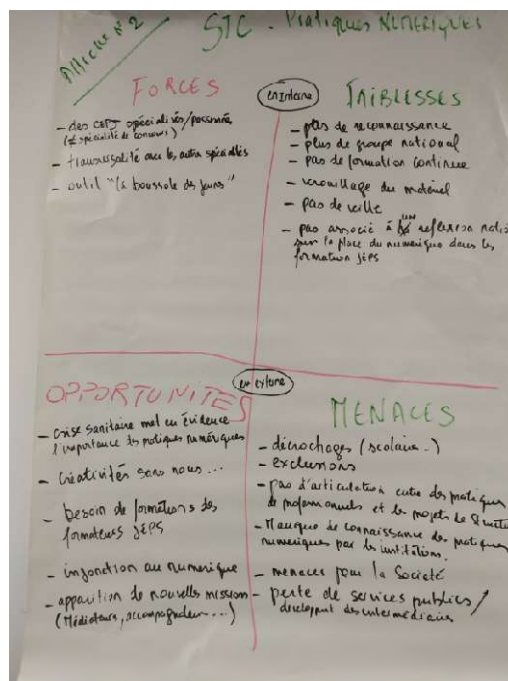 Affiche N°2
STC - Pratiques NUMERIQUES
FORCES
- des CEPJ spécialisés/passionnés
(≠ spécialité de concours)
- transversalité avec les autres spécialités
- outil "la boussole des jeunes"
en interne
FAIBLESSES
- pas de reconnaissance
- plus de groupe national
- pas de formation continue
- verrouillage du matériel
- pas de veille
- pas associé à une reflexion
sur la place du numerique dans les
formation JEPS
en externe
OPPORTUNITES
- crise sanitaire met en évidence
l'importance des pratiques numériques
- Créativités sans nous...
- besoin de formations des
formateurs JEPS
- injonction au numerique
- apparition de nouvelles missions
(Médiateurs, accompagnateur...)
MENACES
- décrochages (scolaire..)
- exclusions
- pas d'articulation entre des pratiques
de professionnels et les projets de structure
- Manque de connaissance des pratiques
numeriques par les institutions.
- menaces pour la Société
- perte de services publics /
developpt des intermédiaires